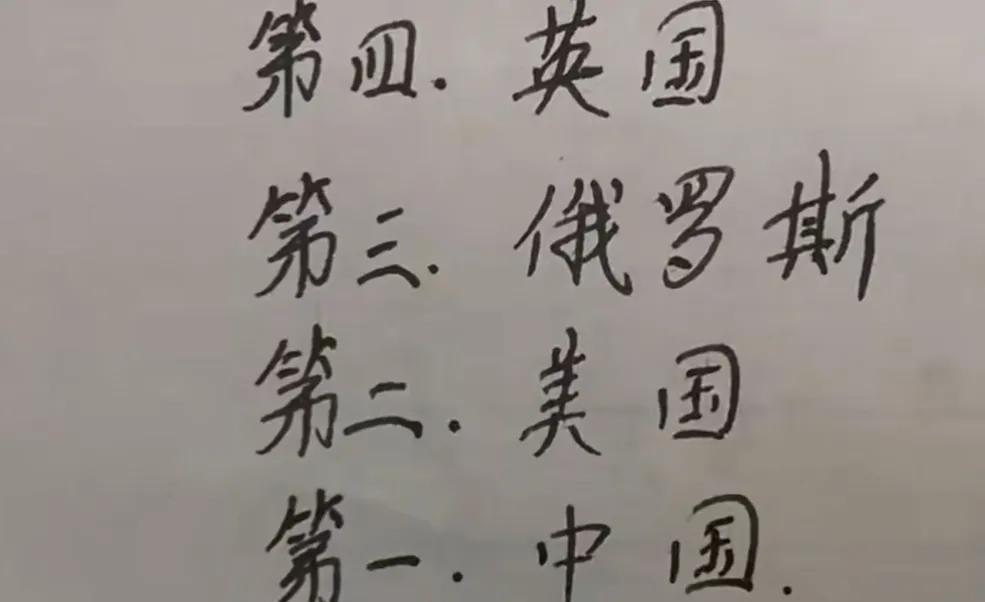 第四.英国
第三.俄罗斯
第二.美国
第一.中国.